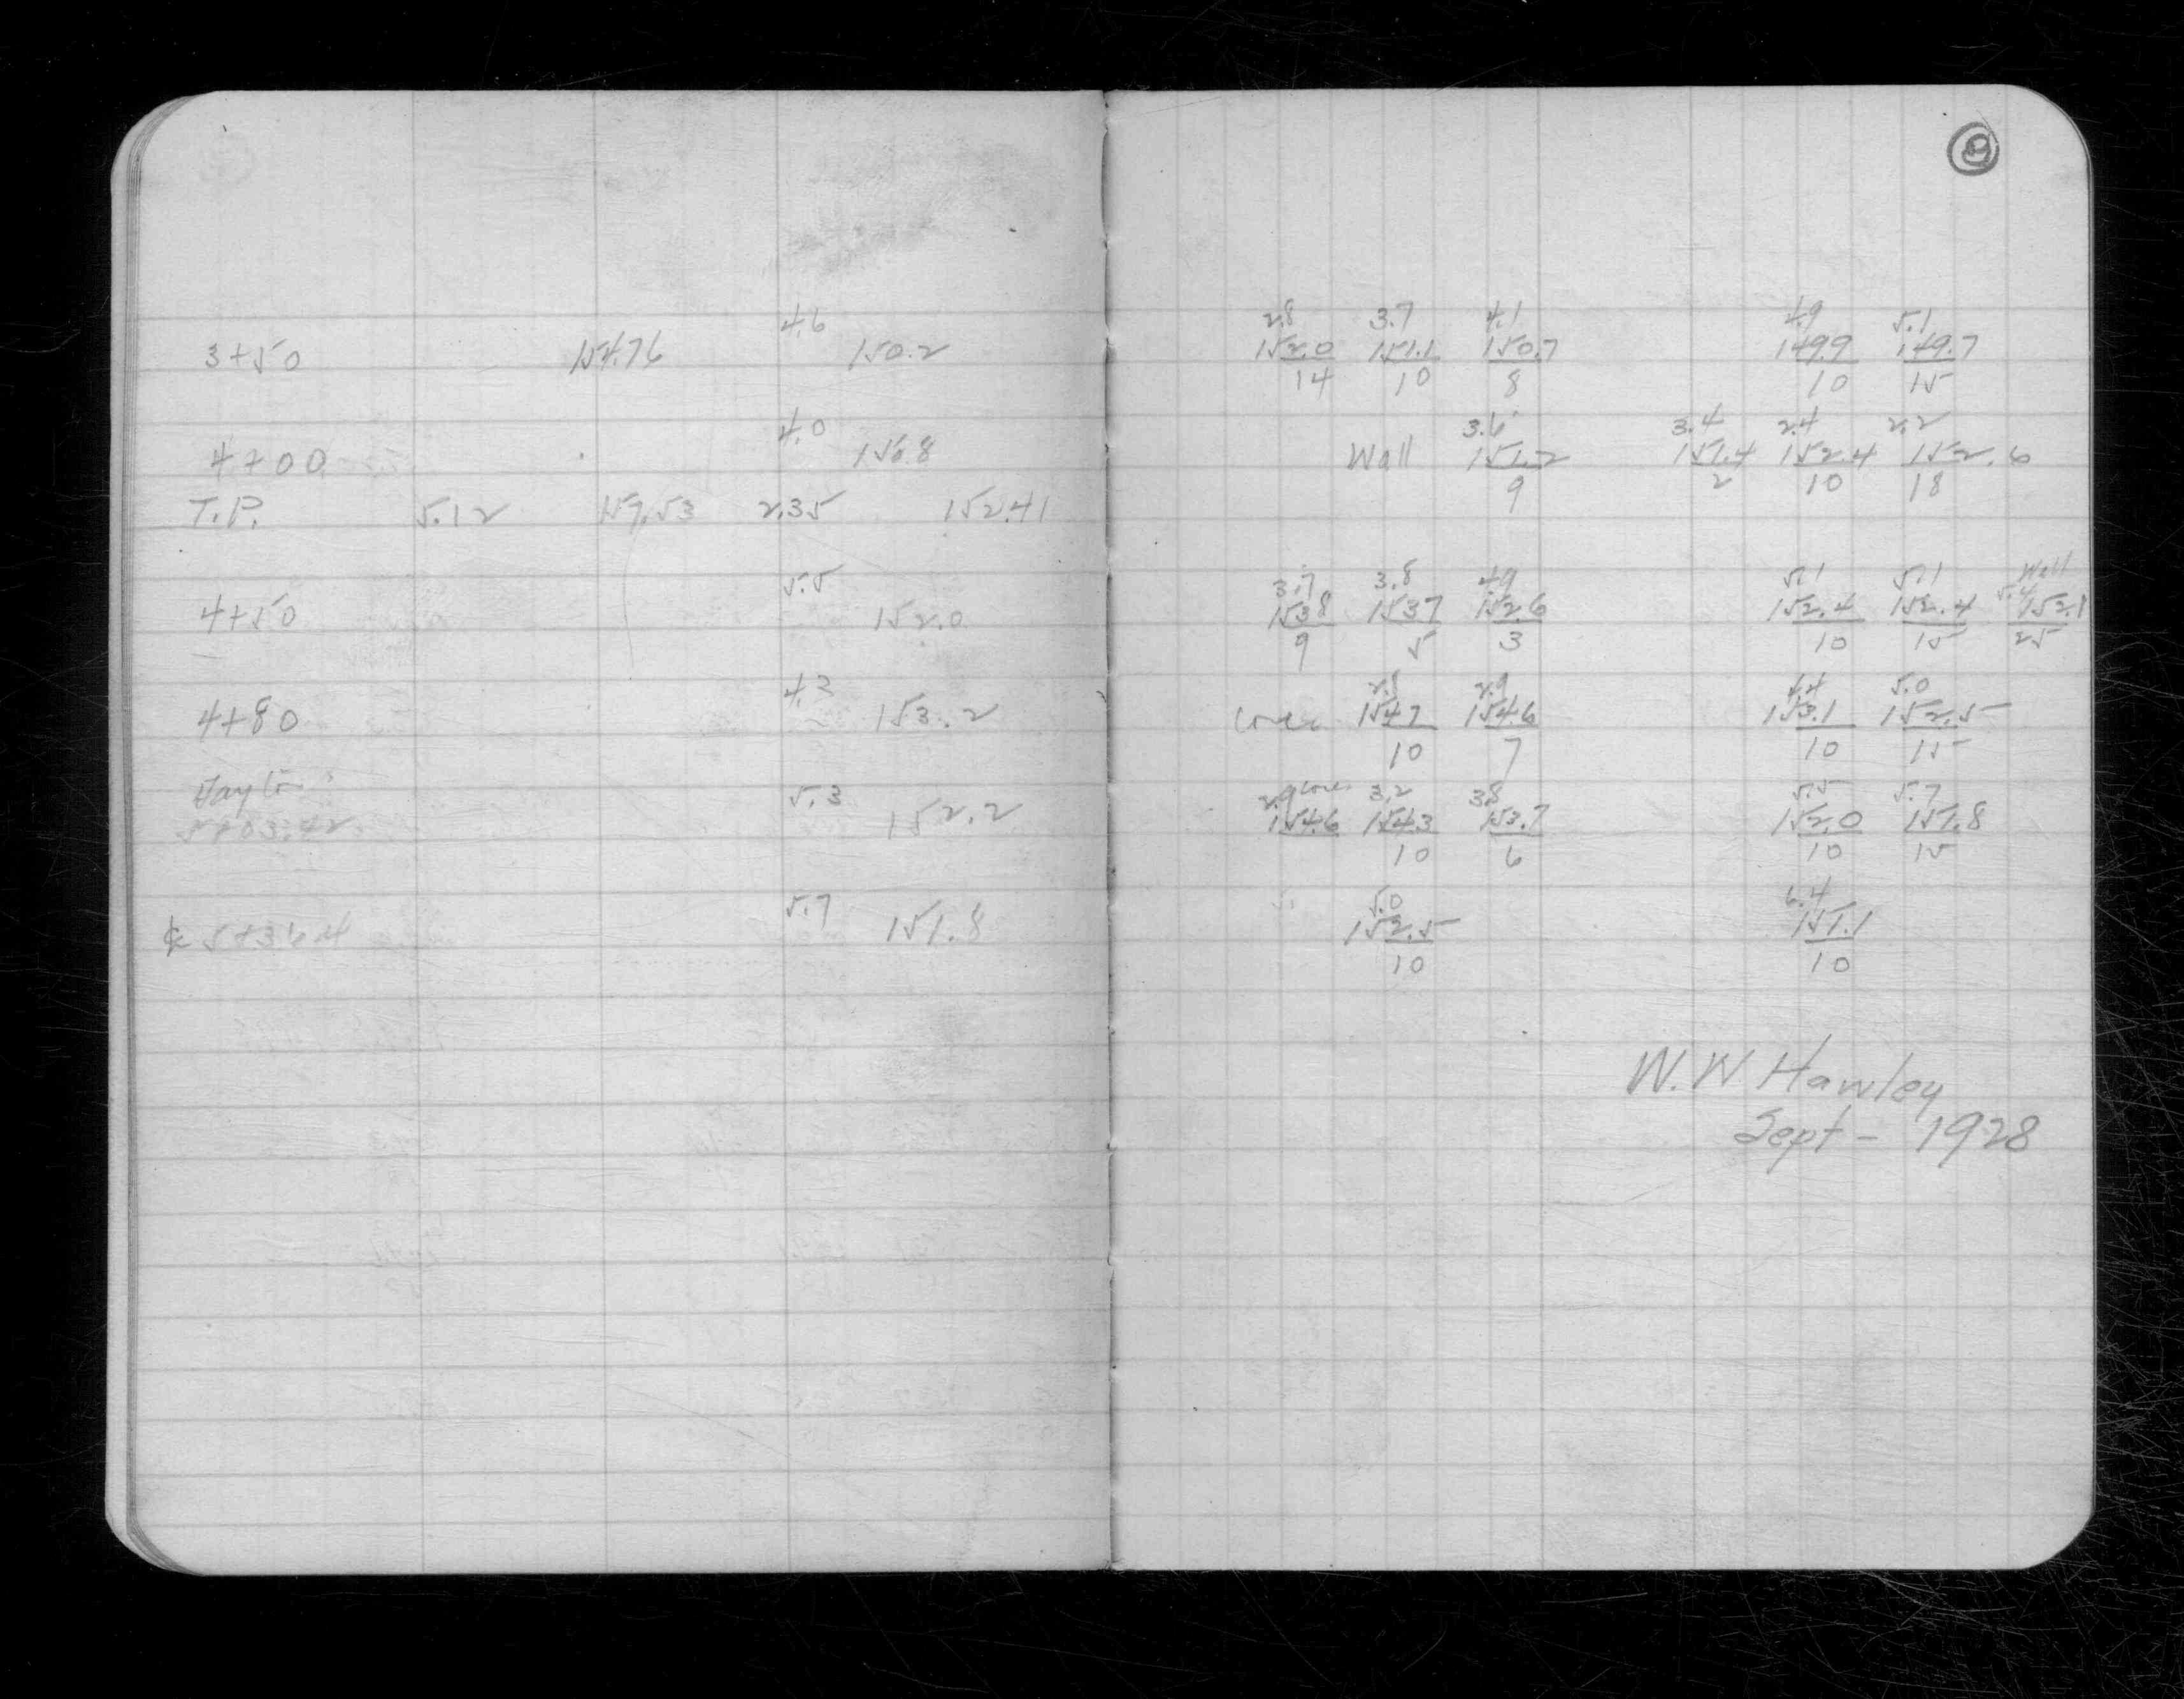 2.8 3.7 4.1 4.9 5.1
4.6
3+50 154.76 150.2 152.0 151.1 150.7 149.9 149.7
14 10 8 10 15
4.0 3.6 3.4 2.4 2.2
4+00 150.8 Wall 151.2 151.4 152.4 152.6
9 2 10 18
T.P. 5.12 157.53 2.35 152.41
5.5 3.7 3.8 4.9 5.1 5.1 Wall 5.4
4+50 152.0 153.8 153.7 152.6 152.4 152.4 152.1
9 5 3 10 15 25
4.3 2.8 2.9 4.4 5.0
4+80 153.2 154.7 154.6 153.1 152.5
10 7 10 15
5.3 2.9 3.2 3.8 5.5 5.7
5+03.42 152.2 154.6 154.3 153.7 152.0 151.8
10 6 10 15
5.7 5.0 6.4
5+36.4 151.8 152.5 151.1
10 10
W. W Hawley
Sept - 1928